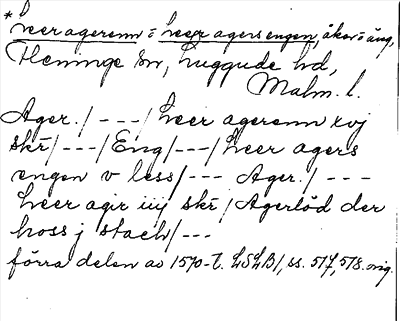 * heer agerenn = heer agers engen, åker o äng,
Fleninge sn, Luggude hd,
Malm. l.
Ager. / - - - / heer agerenn xvj
skr / - - - / Eng / - - - / heer agers
engen v less / - - - Ager. / - - -
heer agir iiij skr / Agerlöd der
hoss j stach / - - -
förra delen av 1570-t. LSLB 1, ss. 517, 518. orig.